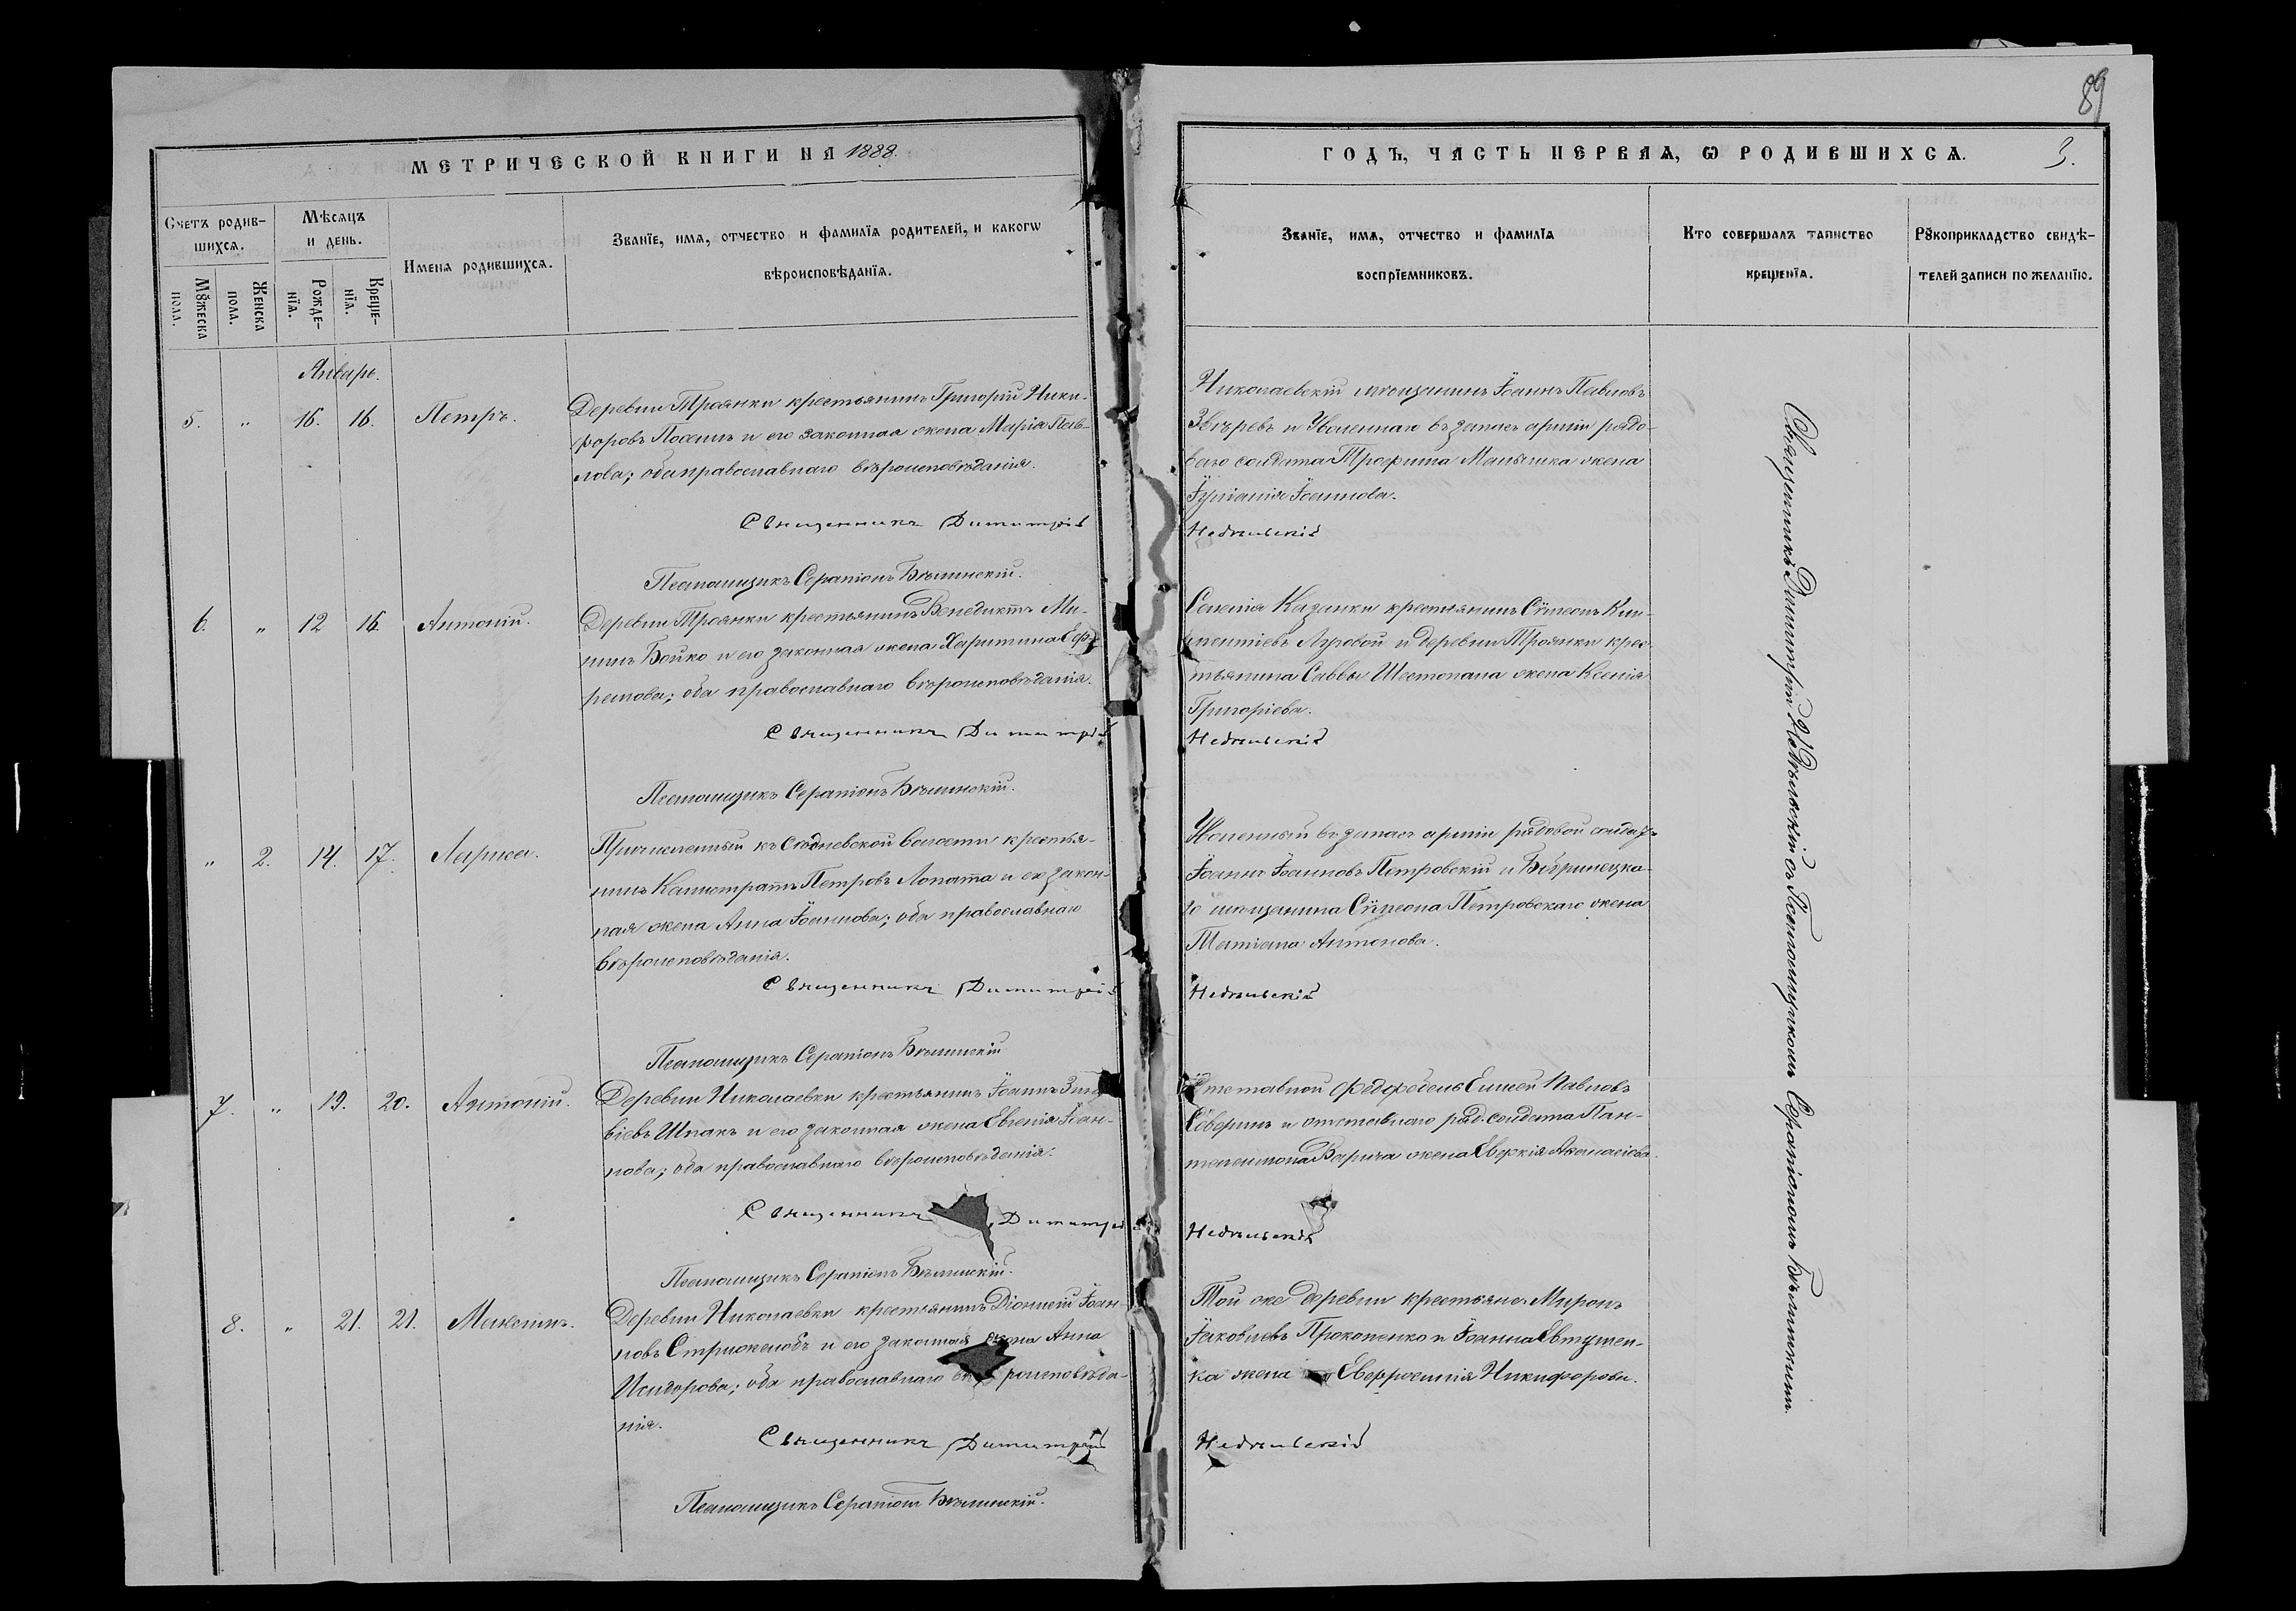 89
МЕТРИЧЕСКОЙ КНИГИ НА 1888.
ГОДЪ, ЧАСТЬ ПЕРВАЯ, Ѡ РОДИВШИХСЯ.
3.
Счетъ родив-
шихся.
Мѣсяцъ
и день.
Имена родившихся.
Званїе, имя, отчество и фамилїя родителей, и какогѡ
вѣроисповѣданїя.
Мꙋжеска
пола.
Женска
пола.
Рожде-
нїя.
Креще-
нїя.
Званїе, имя, отчество и фамилїя
воспрїемниковъ.
Кто совершалъ таинство
крещенїя.
Рꙋкоприкладство свидѣ-
телей записи по желанїю.
Январь.
5. " 16. 16. Петръ.
Деревни Троянки крестьянинъ Григорій Ники-
форовъ Посенъ и его законная жена Марія Пав-
лова; оба православнаго вѣроисповѣданія.
Священникъ Димитрій
Псаломщикъ Серапіонъ Бѣлинскій.
Николаевскій мѣщанинъ Іоаннъ Павловъ
Звѣревъ и Уволеннаго въ запасъ арміи рядо-
ваго солдата Трофима жена
Іуліанія Іоаннова.
Недѣльскій
6. " 12 16. Антоній.
Деревни Троянки крестьянинъ Венедиктъ Ми-
нинъ Бойко и его законная жена Харитина Еф-
ремова; оба православнаго вѣроисповѣданія.
Священникъ Димитрій
Псаломщикъ Серапіонъ Бѣлинскій.
Селенія Казанки крестьянинъ Сѵмеонъ
Луговой и деревни Троянки крес-
тьянина Саввы Шестопала жена Ксенія
Григоріева.
Недѣльскій
" 2. 14. 17. Лариса.
Причисленный къ волости крестья-
нинъ Каллистратъ Петровъ Лопатта и его закон-
ная жена Анна Іоаннова; оба православнаго
вѣроисповѣданія.
Священникъ Димитрій
Псаломщикъ Серапіонъ Бѣлинскій
Уволенный въ запасъ арміи рядовой солдатъ
Іоаннъ Іоанновъ Петровскій и Бобринецка-
го мѣщанина Сѵмеона Петровскаго жена
Татіана Антонова.
Недѣльскій
7. " 19. 20. Антоній.
Деревни Николаевки крестьянинъ Іоаннъ Зино-
віевъ Шпакъ и его законная жена Евгенія Іоан-
нова; оба православнаго вѣроисповѣданія.
Священникъ Димитрій
Псаломщикъ Серапіонъ Бѣлинскій.
Отставной Федфебель Елисей Павловъ
Северинъ и отставнаго ряд. солдата Пан-
телеимона жена Аѳанасіева.
Недѣльскій
8. " 21. 21. Максимъ.
Деревни Николаевки крестьянинъ Діонисій Іоан-
новъ и его законная жена Анна
Исидорова; оба православнаго вѣроисповѣда-
нія.
Священникъ Димитрій
Псаломщикъ Серапіонъ Бѣлинскій.
Той же деревни крестьяне Миронъ
Іаковлевъ Прокопенко и Іоанна Евтушен-
ка жена Евфросинія Никифорова.
Недѣльскій
Священникъ Димитрій Недѣльскій съ Псаломщикомъ Серапіономъ Бѣлинскимъ.